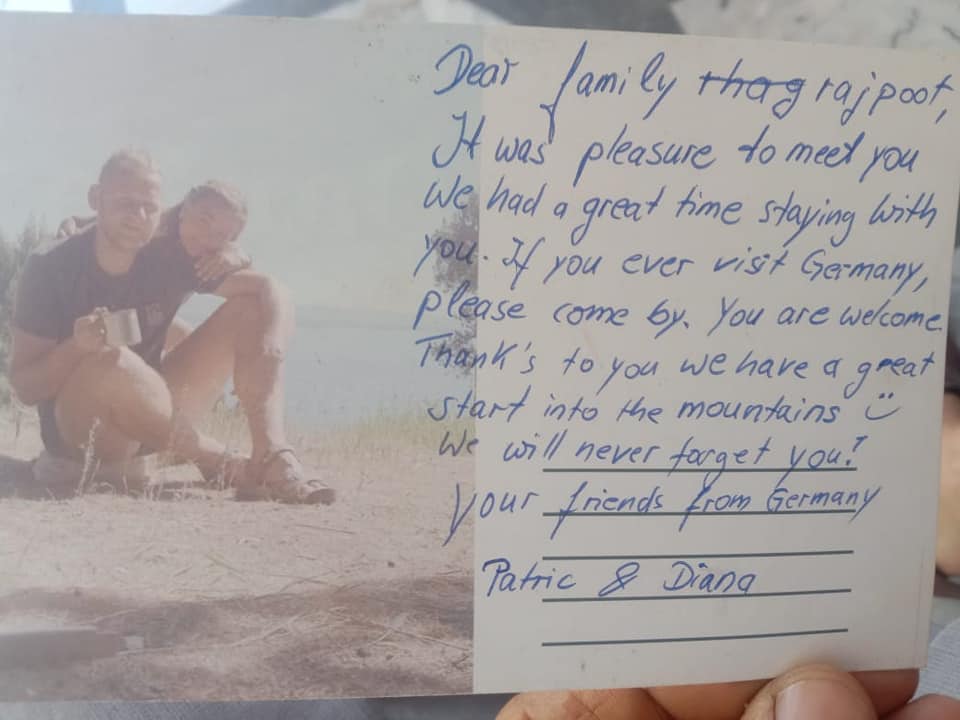 Dear family rajpoot,
It was pleasure to meet you
We had a great time staying with
you. If you ever visit Germany,
please come by. You are welcome.
Thank's to you we have a great
start into the mountains ☺
We will never forget you!
your friends from Germany
Patric & Diana